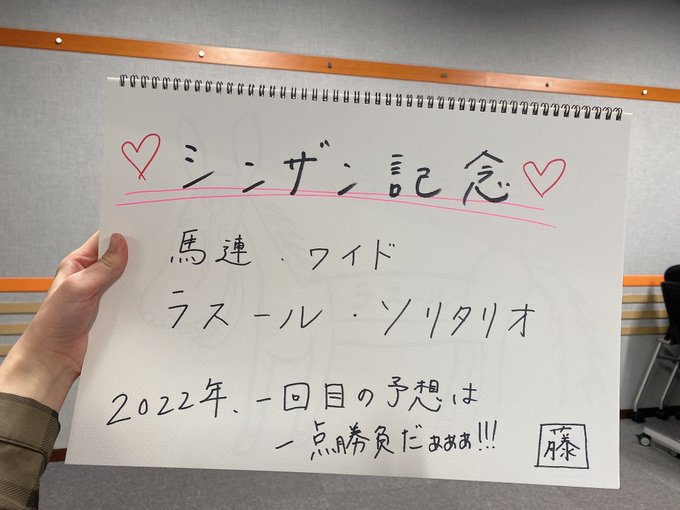 ♡シンザン記念♡
馬連.ワイド
ラスール・ソリタリオ
2022年、一回目の予想は
一点勝負だぁぁぁ!!!
藤